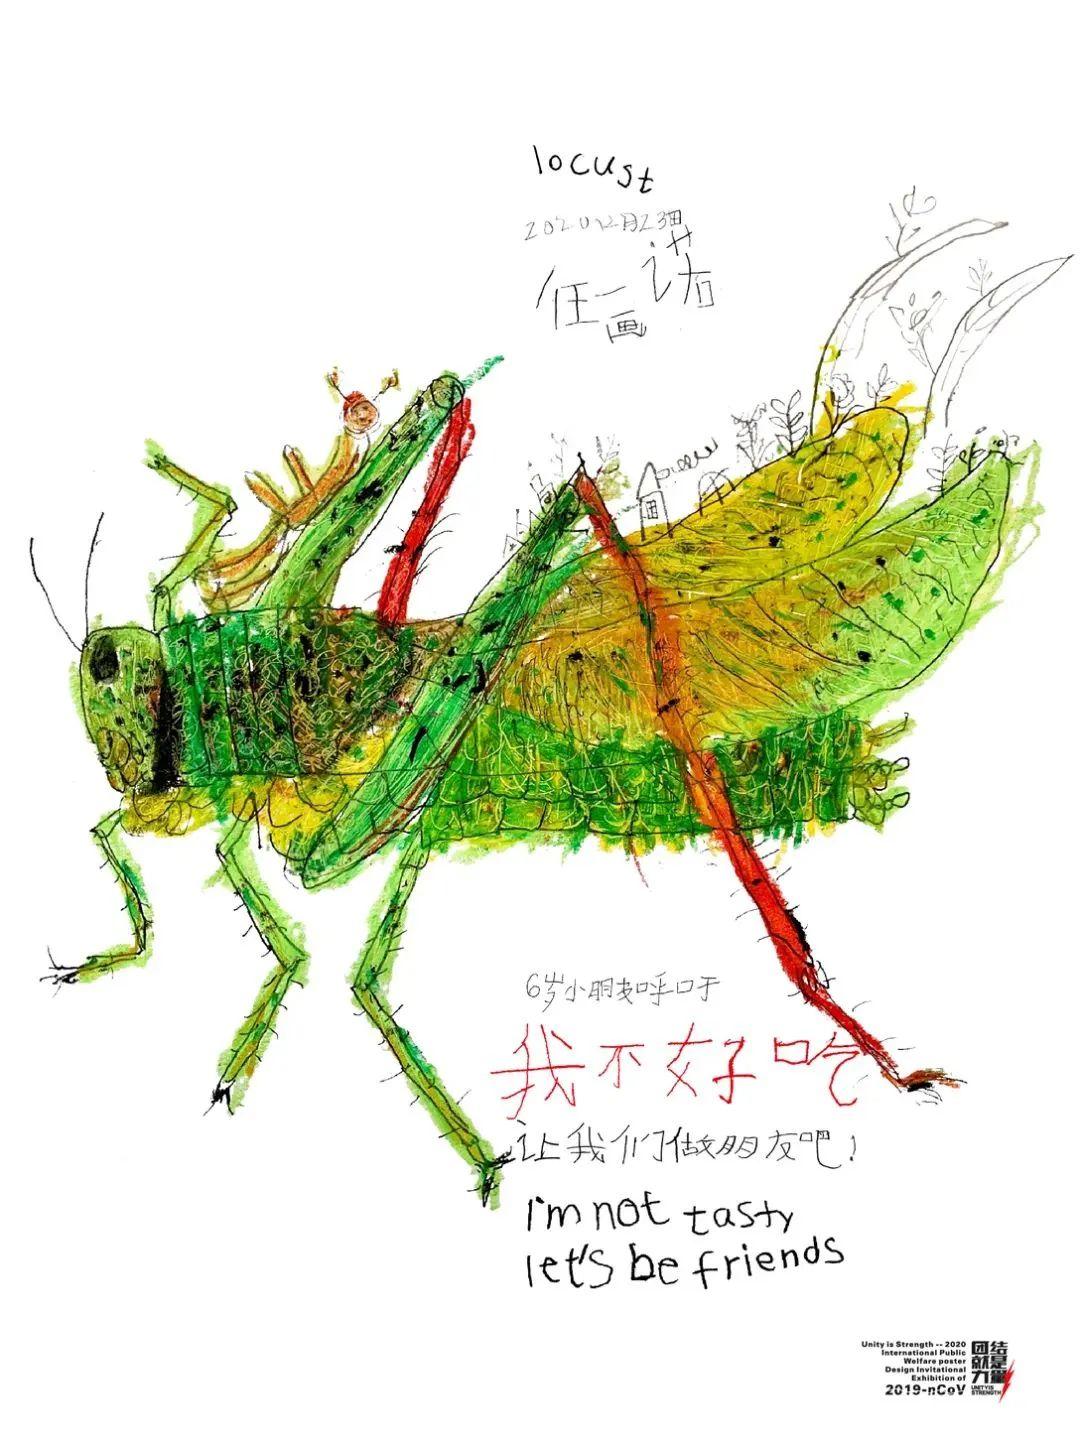 locust
2020年2月23日
任一诺
画
6岁小朋友呼吁
我不好吃
让我们做朋友吧!
I'm not tasty
let's be friends
Unity is Strength -- 2020
International Public
Welfare poster
Design Invitational
Exhibition of
2019-nCoV
团结
就是
力量
UNITY IS
STRENGTH